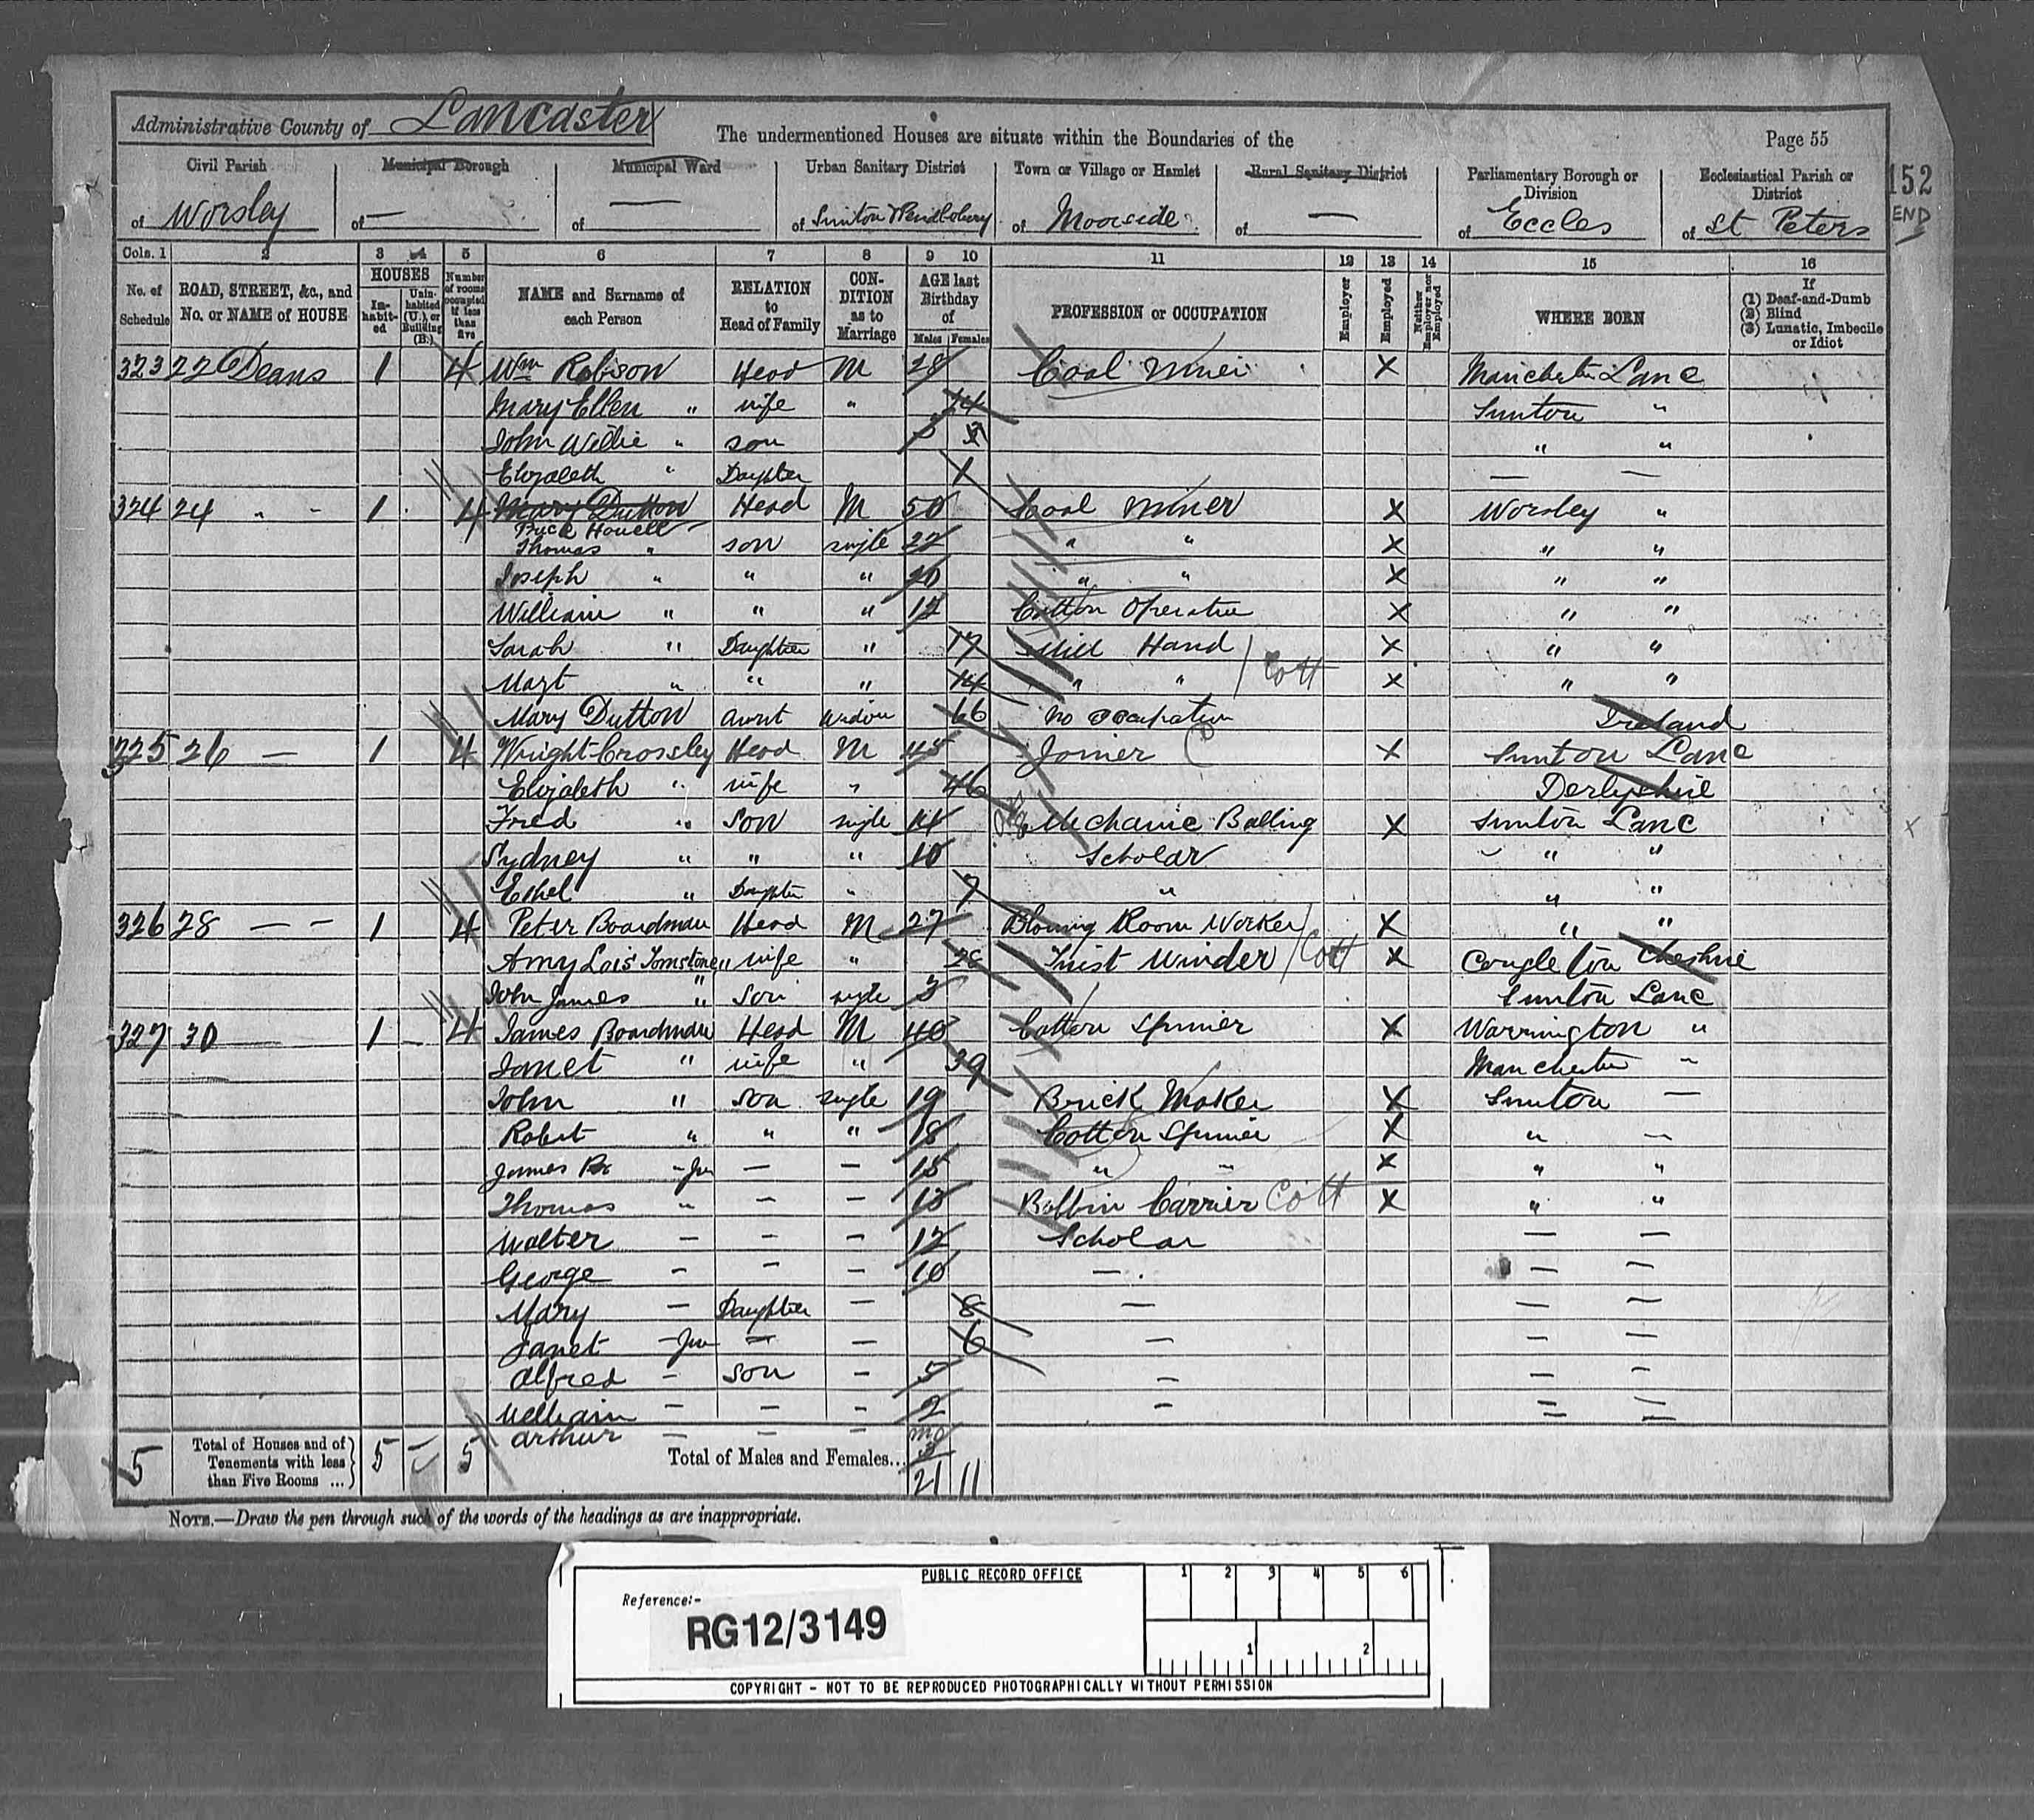 Administrative County of Lancaster
The undermentioned Houses are situate within the Boundaries of the
Page 55
152
END
Civil Parish
of Worsley
Municipal Borough
of —
Municipal Ward
of —
Urban Sanitary District
of Swinton & Pendlebury
Town or Village or Hamlet
of Moorside
Rural Sanitary District
of —
Parliamentary Borough or Division
of Eccles
Ecclesiastical Parish or District
of St Peters
Cols. 1 2 3 4 5 6 7 8 9 10 11 12 13 14 15 16
No. of Schedule
ROAD, STREET, &c., and No. or NAME of HOUSE
HOUSES
Inhabited
Uninhabited (U.), or Building (B.)
Number of rooms occupied if less than five
NAME and Surname of each Person
RELATION to Head of Family
CONDITION as to Marriage
AGE last Birthday of
Males Females
PROFESSION or OCCUPATION
Employer
Employed
Neither Employer nor Employed
WHERE BORN
If
(1) Deaf-and-Dumb
(2) Blind
(3) Lunatic, Imbecile or Idiot
323 22 Deans 1 4 Wm Robison Head M 28 Coal Miner X Manchester Lanc
Mary Ellen " wife " Swinton "
John Willie " son " "
Elizabeth " Daughter 1 — —
324 24 " - 1 4 Mary Dutton Head M 50 Coal Miner X Worsley "
Howell
Thomas " son single 22 " " X " "
Joseph " " " 20 " " X " "
William " " " 12 Cotton Operative X " "
Sarah " Daughter " 17 Mill Hand X " "
Cott
Magt " " " 14 " " X " "
Mary Dutton Aunt Widow 66 No occupation Ireland
325 26 — 1 4 Wright Crossley Head M 45 Joiner X Swinton Lanc
Elizabeth " wife " 46 Derbyshire
Fred " Son single 14 Mechanic X Swinton Lanc
Sydney " " " 10 Scholar " "
Ethel " Daughter " 7 " " "
326 28 — — 1 4 Peter Boardman Head M 27 Blowing Room Worker X " "
Amy Lois " wife " 28 Twist Winder Cott X Congleton Cheshire
John James " Son single 3 Swinton Lanc
327 30 — 1 — 4 James Boardman Head M 40 Cotton Spinner X Warrington "
Janet " wife " 39 Manchester "
John " son single 19 Brick Maker X Swinton —
Robert " " " 18 Cotton Spinner X " —
James " Jun — — 15 " " X " "
Thomas " — — 13 Bobbin Carrier Cott X " "
Walter — — — 12 Scholar — —
George — — — 10 — — —
Mary — Daughter — 8 — — —
Janet — Jun — — 6 — — —
Alfred — son — 5 — — —
William — — — 2 — — —
Arthur — — — mo
3
5 Total of Houses and of Tenements with less than Five Rooms ... 5 — 5 Total of Males and Females... 21 11
NOTE.—Draw the pen through such of the words of the headings as are inappropriate.
PUBLIC RECORD OFFICE
1 2 3 4 5 6
Reference:-
RG12/3149
1 2
COPYRIGHT - NOT TO BE REPRODUCED PHOTOGRAPHICALLY WITHOUT PERMISSION